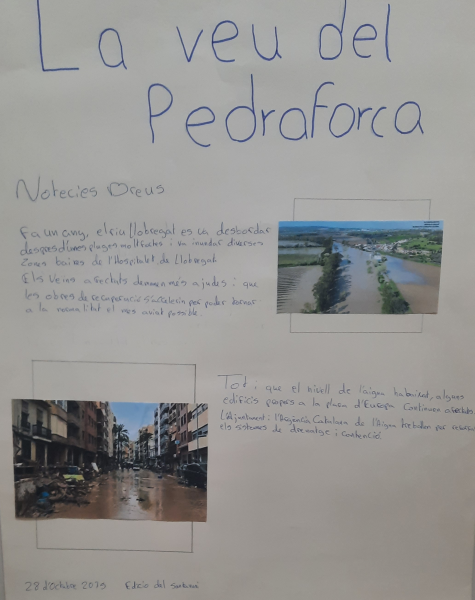 La veu del
Pedraforca
Notecies Breus
Fa un any, el riu llobregat es va desbordar
després d'unes pluges molt fortes i va inundar diverses
Zones baixes de l'Hospitalet de Llobregat
Els Veïns afectats demanen més ajudes i que
les obres de recuperació s'accelerin per poder tornar
a la normalitat el més aviat possible.
Tot i que el nivell de l'aigua ha baixat, algunes
edificis propers a la plaça d'Europa Continuen afectats.
L'Ajuntament i l'Agència Catalana de l'Aigua treballen per
els sistemes de drenatge i contenció
28 d'Octubre Edició del